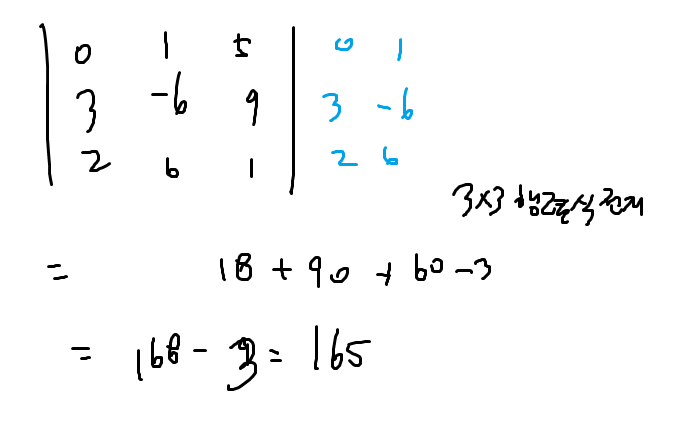 | 0 1 5 | 0 1
| 3 -6 9 | 3 -6
| 2 6 1 | 2 6
3×3 행렬식 전개
= 18 + 90 + 60 - 3
= 168 - 3 = 165